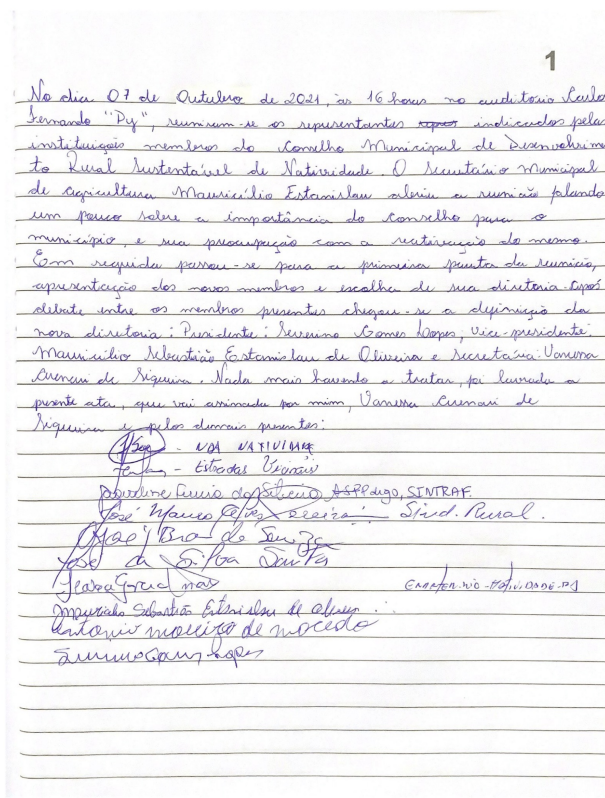 1
No dia 07 de Outubro de 2021, às 16 horas no auditório Carlos
Fernando "Py", reuniram-se os representantes indicados pelas
instituições membros do Conselho Municipal de Desenvolvimen
to Rural Sustentável de Natividade. O Secretário Municipal
de agricultura Mauricílio Estanislau abriu a reunião falando
um pouco sobre a importância do conselho para o
município, e sua preocupação com a reativação do mesmo.
Em seguida passou-se para a primeira pauta da reunião,
apresentação dos novos membros e escolha de sua diretoria. Após
debate entre os membros presentes chegou-se a definição da
nova diretoria: Presidente: Severino Gomes Lopes, vice-presidente:
Mauricílio Sebastião Estanislau de Oliveira e secretária: Vanessa
de Siqueira. Nada mais havendo a tratar, foi lavrada a
presente ata, que vai assinada por mim, Vanessa de
Siqueira e pelos demais presentes:
- NATIVIDADE
- Estradas Vicinais
da SINTRAF.
José Pereira Sind. Rural.
José Braz de Souza
José da Silva
EMATER-RIO-NATIVIDADE-RJ
Mauricílio Sebastião Estanislau de
Antonio moreira de macedo
Lopes